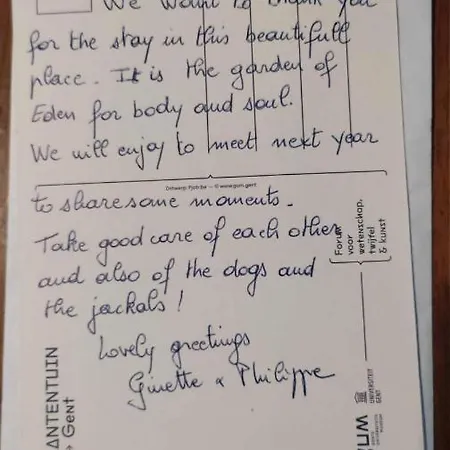 We want to thank you
for the stay in this beautifull
place. It is the garden of
Eden for body and soul.
We will enjoy to meet next year
www.gum.gent
to share some moments.
Take good care of each other
and also of the dogs and
the jackals!
Lovely greetings
Ginette & Philippe
Forum
voor
wetenschap,
twijfel
& kunst
ANTENTUIN
Gent
UM
UNIVERSITEIT
GENT